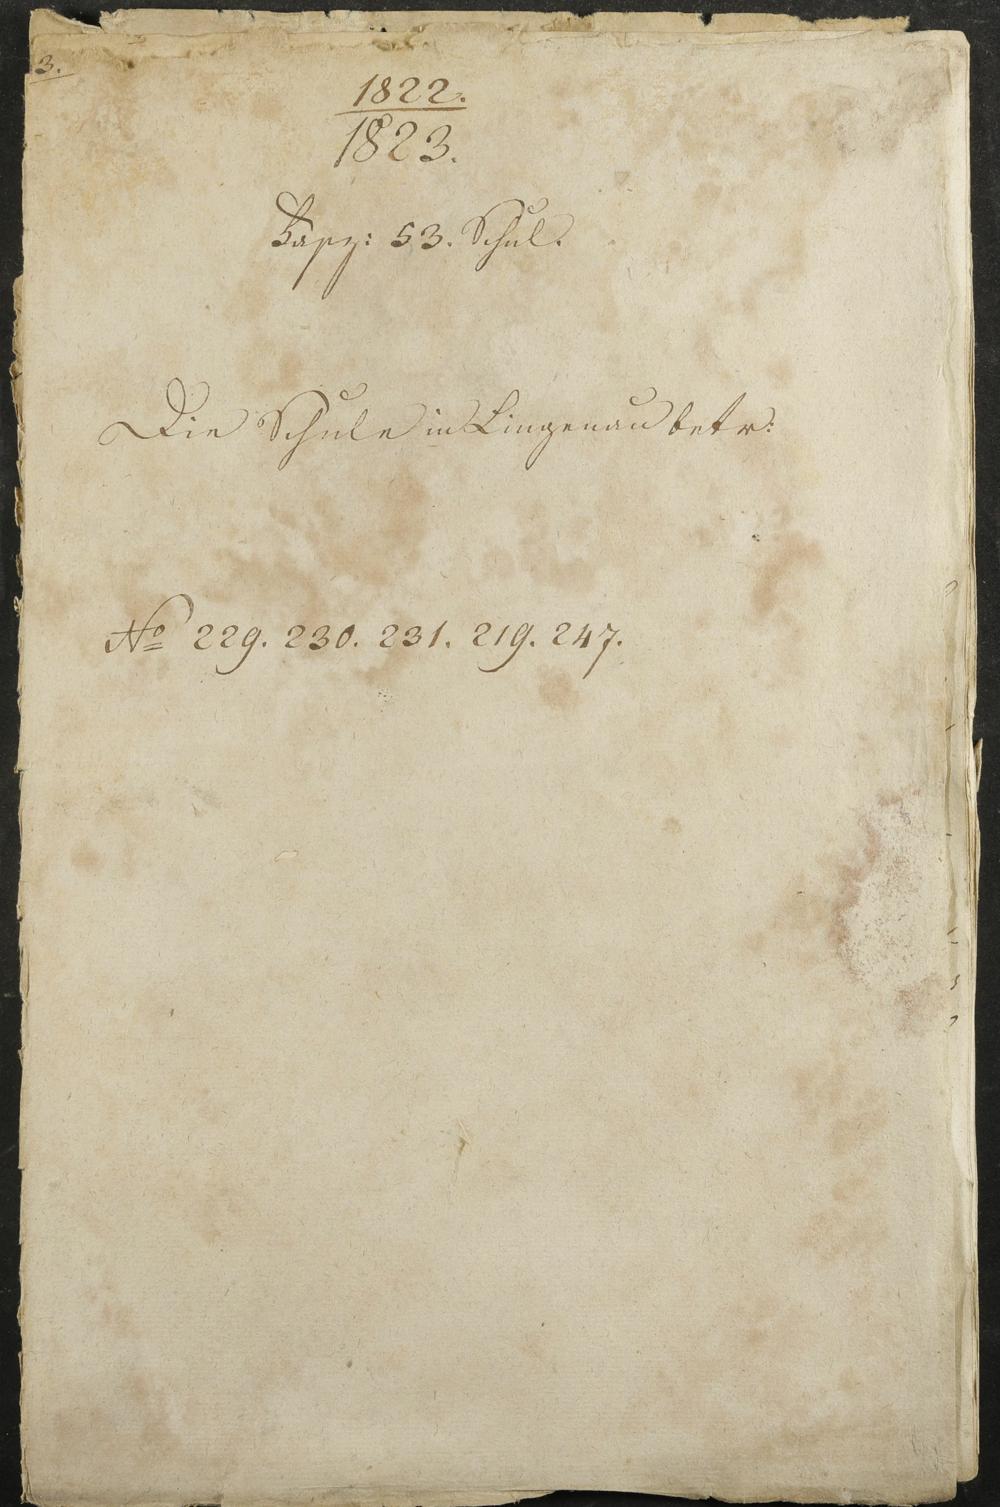 3.
1822.
1823.
Fasz: 53. Schul.
Die Schule in Lingenau betr:
No 229. 230. 231. 219. 247.